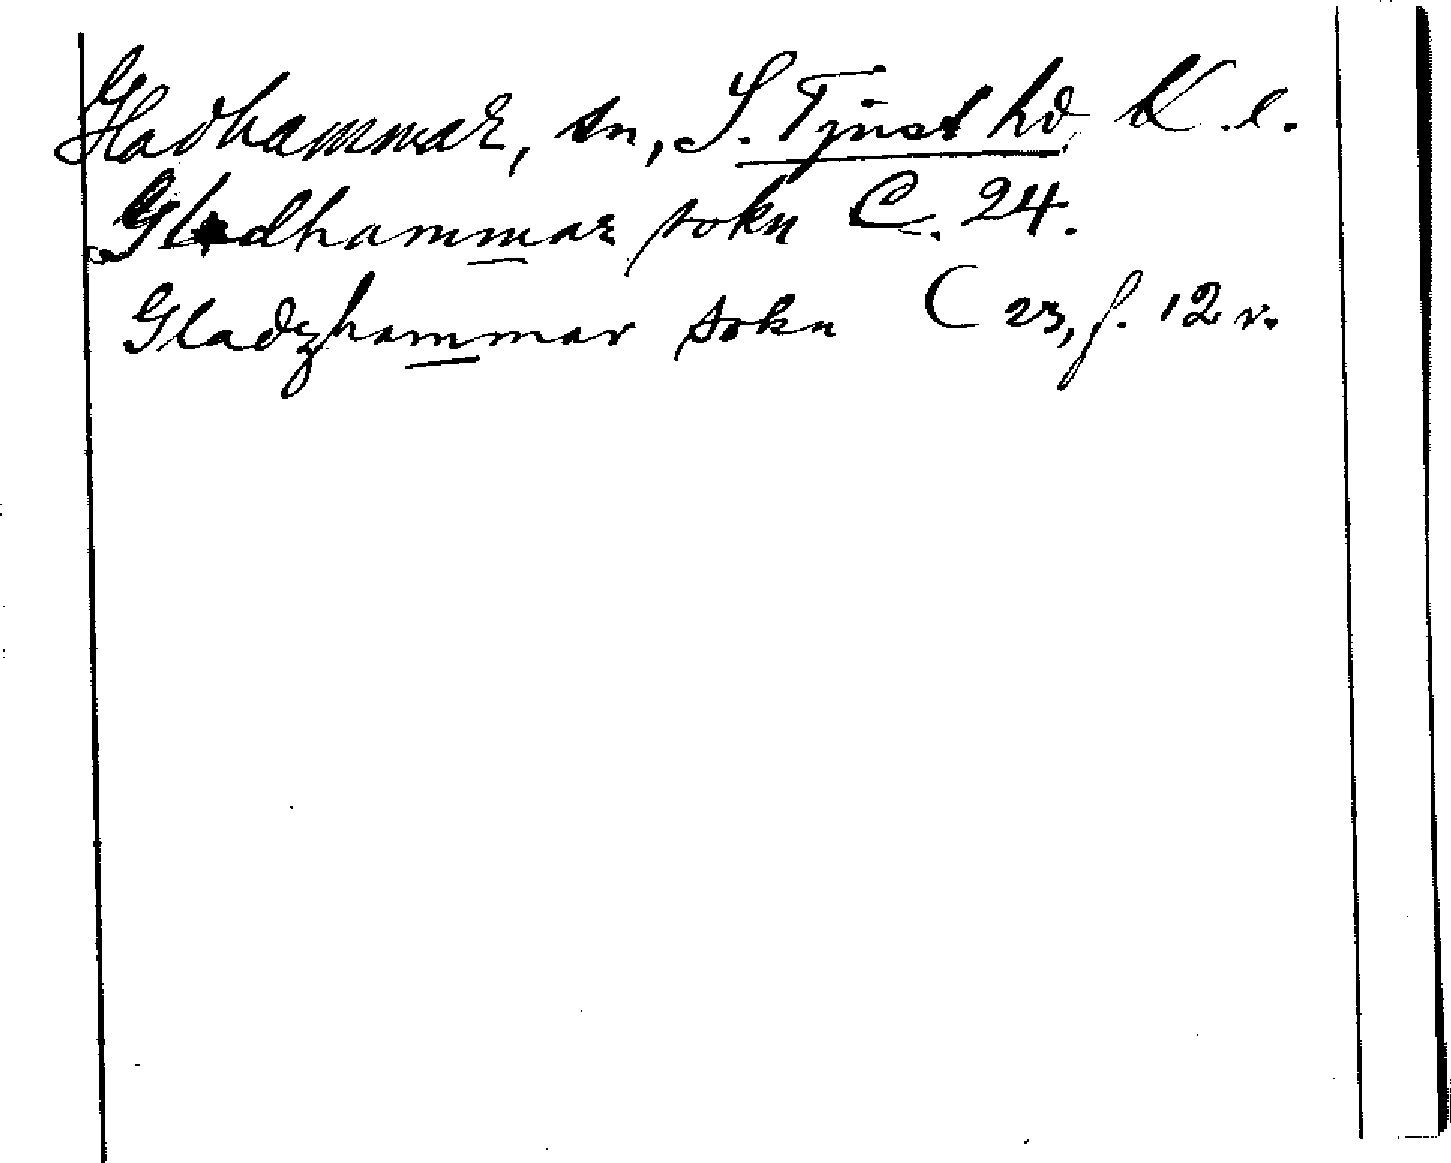 Gladhammar, sn, S. Tjust hd K. l.
Gladhammar sokn C. 24.
Gladzhammar sokn C 23, f. 12 v.